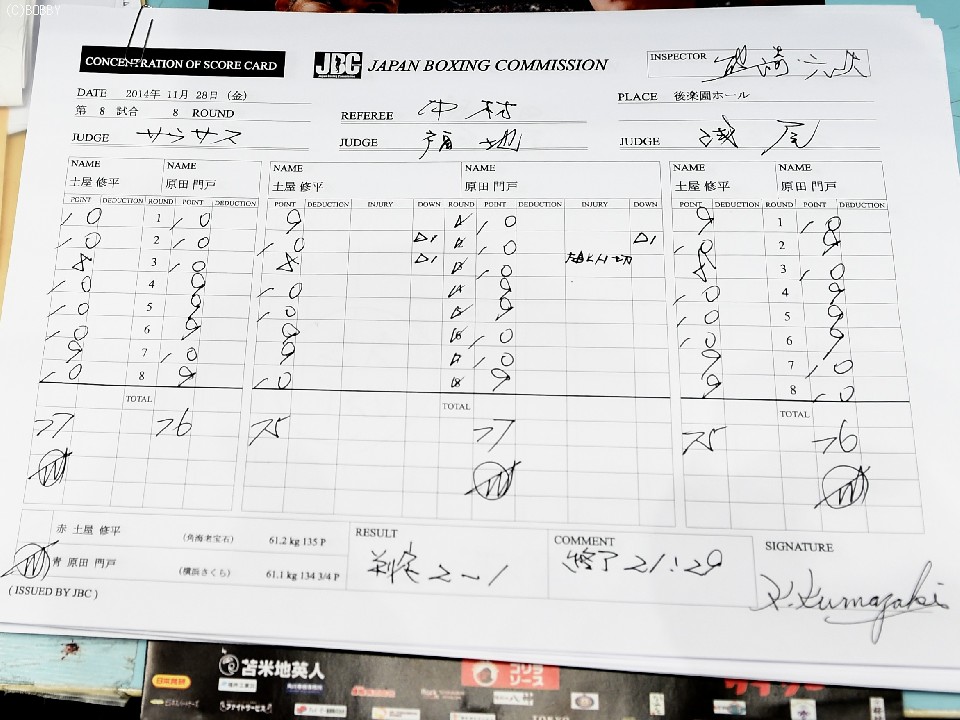 (C)BOBBY
CONCENTRATION OF SCORE CARD
JBC JAPAN BOXING COMMISSION
INSPECTOR
DATE 2014年 11月 28日 (金)
PLACE 後楽園ホール
第 8 試合 8 ROUND
REFEREE 中村
JUDGE サラサス
JUDGE 福地
JUDGE 浅尾
NAME NAME NAME NAME NAME NAME
土屋 修平 原田 門戸 土屋 修平 原田 門戸 土屋 修平 原田 門戸
POINT DEDUCTION ROUND POINT DEDUCTION POINT DEDUCTION INJURY DOWN ROUND POINT DEDUCTION INJURY DOWN POINT DEDUCTION ROUND POINT DEDUCTION
10 1 10 9 1 10 9 1 10
10 2 9 10 △1 2 10 △1 10 2 8
8 3 10 8 △1 3 10 8 3 10
10 4 9 10 4 9 10 4 9
10 5 9 10 5 9 10 5 9
10 6 9 9 6 10 10 6 9
9 7 10 9 7 10 9 7 10
10 8 9 10 8 9 9 8 10
TOTAL TOTAL TOTAL
77 76 75 77 75 76
W W W
赤 土屋 修平 (角海老宝石) 61.2 kg 135 P
W 青 原田 門戸 (横浜さくら) 61.1 kg 134 3/4 P
RESULT
判定 2-1
COMMENT
終了 21:29
SIGNATURE
K.Kumazaki
( ISSUED BY JBC )
苫米地英人
ゴリラ
ソース
日本晃覧
ファイトサービス